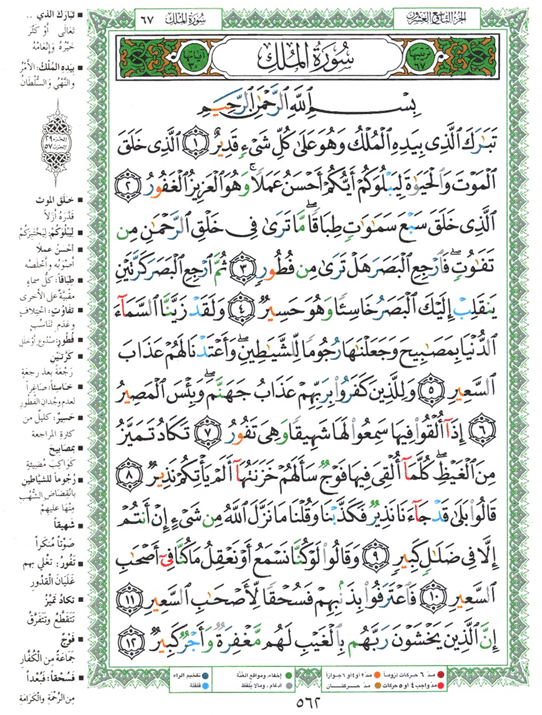 الجزء التاسع والعشرون
سُورَةُ المُلْكِ
٦٧
سُورَةُ المُلْكِ
بِسْمِ اللَّهِ الرَّحْمَٰنِ الرَّحِيمِ
تَبَارَكَ الَّذِي بِيَدِهِ الْمُلْكُ وَهُوَ عَلَىٰ كُلِّ شَيْءٍ قَدِيرٌ ١ الَّذِي خَلَقَ
الْمَوْتَ وَالْحَيَاةَ لِيَبْلُوَكُمْ أَيُّكُمْ أَحْسَنُ عَمَلًا ۚ وَهُوَ الْعَزِيزُ الْغَفُورُ ٢
الَّذِي خَلَقَ سَبْعَ سَمَاوَاتٍ طِبَاقًا ۖ مَّا تَرَىٰ فِي خَلْقِ الرَّحْمَٰنِ مِن
تَفَاوُتٍ ۖ فَارْجِعِ الْبَصَرَ هَلْ تَرَىٰ مِن فُطُورٍ ٣ ثُمَّ ارْجِعِ الْبَصَرَ كَرَّتَيْنِ
يَنقَلِبْ إِلَيْكَ الْبَصَرُ خَاسِئًا وَهُوَ حَسِيرٌ ٤ وَلَقَدْ زَيَّنَّا السَّمَاءَ
الدُّنْيَا بِمَصَابِيحَ وَجَعَلْنَاهَا رُجُومًا لِّلشَّيَاطِينِ ۖ وَأَعْتَدْنَا لَهُمْ عَذَابَ
السَّعِيرِ ٥ وَلِلَّذِينَ كَفَرُوا بِرَبِّهِمْ عَذَابُ جَهَنَّمَ ۖ وَبِئْسَ الْمَصِيرُ
٦ إِذَا أُلْقُوا فِيهَا سَمِعُوا لَهَا شَهِيقًا وَهِيَ تَفُورُ ٧ تَكَادُ تَمَيَّزُ
مِنَ الْغَيْظِ ۖ كُلَّمَا أُلْقِيَ فِيهَا فَوْجٌ سَأَلَهُمْ خَزَنَتُهَا أَلَمْ يَأْتِكُمْ نَذِيرٌ ٨
قَالُوا بَلَىٰ قَدْ جَاءَنَا نَذِيرٌ فَكَذَّبْنَا وَقُلْنَا مَا نَزَّلَ اللَّهُ مِن شَيْءٍ إِنْ أَنتُمْ
إِلَّا فِي ضَلَالٍ كَبِيرٍ ٩ وَقَالُوا لَوْ كُنَّا نَسْمَعُ أَوْ نَعْقِلُ مَا كُنَّا فِي أَصْحَابِ
السَّعِيرِ ١٠ فَاعْتَرَفُوا بِذَنبِهِمْ فَسُحْقًا لِّأَصْحَابِ السَّعِيرِ ١١
إِنَّ الَّذِينَ يَخْشَوْنَ رَبَّهُم بِالْغَيْبِ لَهُم مَّغْفِرَةٌ وَأَجْرٌ كَبِيرٌ ١٢
تَبَارَكَ الذي ..
تعالى أو كثر
خيره وإنعامه
بيده المُلك: الأمر
والنهي والسلطان
خلق الموت
قدّره أزلاً
ليبلوكم: ليختبركم
أحسن عملاً
أصوبه وأخلصه
طباقاً: كل سماء
مقببة على الأخرى
تفاوت: اختلاف
وعدم تناسب
فطور: صدوع أو خلل
كرتين
رجعة بعد رجعة
خاسئاً: صاغراً
لعدم وجدان الفطور
حسير: كليل من
كثرة المراجعة
بمصابيح
كواكب مضيئة
رجوماً للشياطين
بانقضاض الشهب
منها عليهم
شهيقاً
صوتاً منكراً
تفور: تغلي بهم
غليان القدور
تكاد تميز
تتقطع وتتفرق
فوج
جماعة من الكفار
فسحقاً: فبعداً
من الرحمة والكرامة
مدّ ٦ حركات لزوماً
مدّ ٢ أو ٤ أو ٦ جوازاً
إخفاء، ومواقع الغنّة
تفخيم الراء
مدّ واجب ٤ أو ٥ حركات
مدّ حركتان
ادغام، وما لا يلفظ
قلقلة
٥٦٢